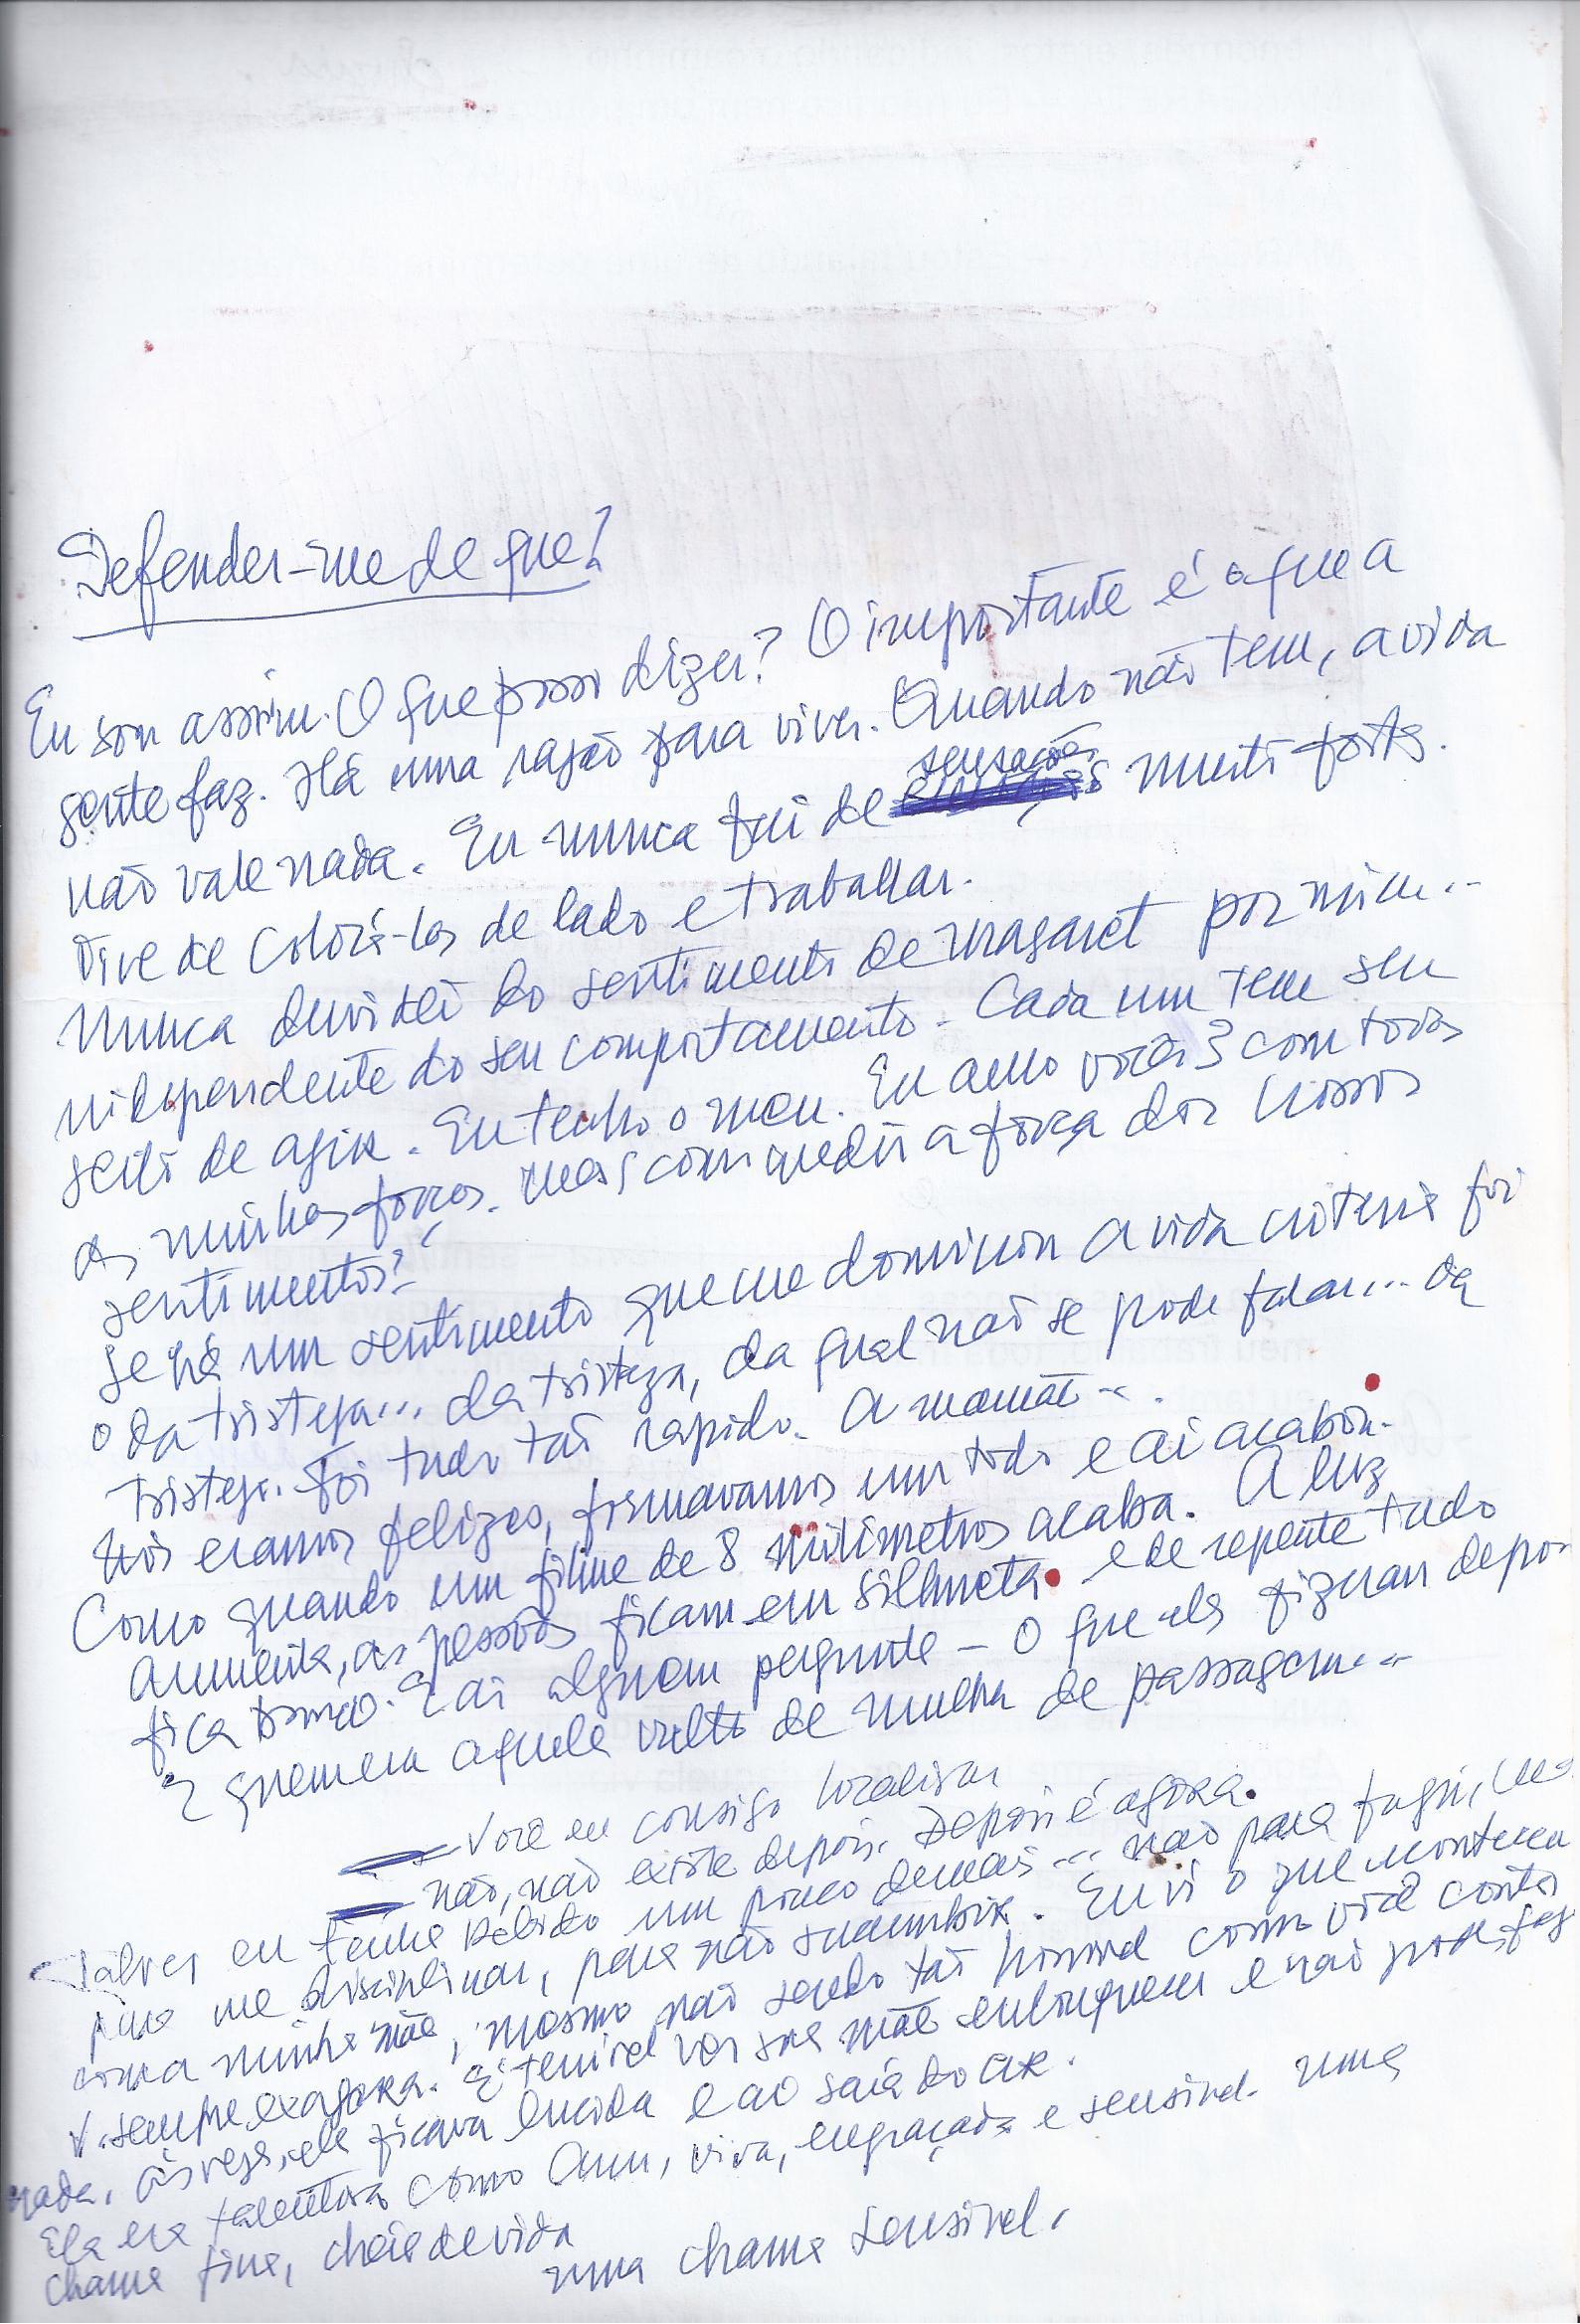 Defender-me de que?
Eu sou assim. O que posso dizer? O importante é o que a
gente faz. Há uma razão para viver. Quando não tem, a vida
não vale nada. Eu nunca fui de sensações muito fortes.
Tive de colocá-las de lado e trabalhar.
Nunca duvidei do sentimento de Margaret por mim...
independente do seu comportamento. Cada um tem seu
jeito de agir. Eu tenho o meu. Eu amo vocês 3 com todas
as minhas forças. Mas, como medir a força dos nossos
sentimentos?
Se há um sentimento que me dominou a vida inteira foi
o da tristeza... da tristeza, da qual não se pode falar... da
tristeza. Foi tudo tão rápido. A mamãe...
Nós eramos felizes, formavamos um todo e aí acabou.
Como quando um filme de 8 milimetros acaba. A luz
aumenta, as pessoas ficam em silhueta e de repente tudo
fica branco. E aí alguem pergunta - O que eles fizeram depo
E quem era aquele vulto de mulher de passagem...
Você eu consigo localizar
não, não existe depois. Depois é agora.
Talvez eu tenha bebido um pouco demais... não para fugir, ma
para me disciplinar, para não sucumbir. Eu vi o que aconteceu
com a minha mãe, mesmo não sendo tão horrivel como você conta
V. sempre exagera. É terrivel ver sua mãe enlouquecer e não poder faz
nada. Às vezes, ela ficava lucida e aí saía do ar.
Ela era talentosa como Ann, viva, engraçada e sensivel. Uma
chama fina, cheia de vida
uma chama sensivel.